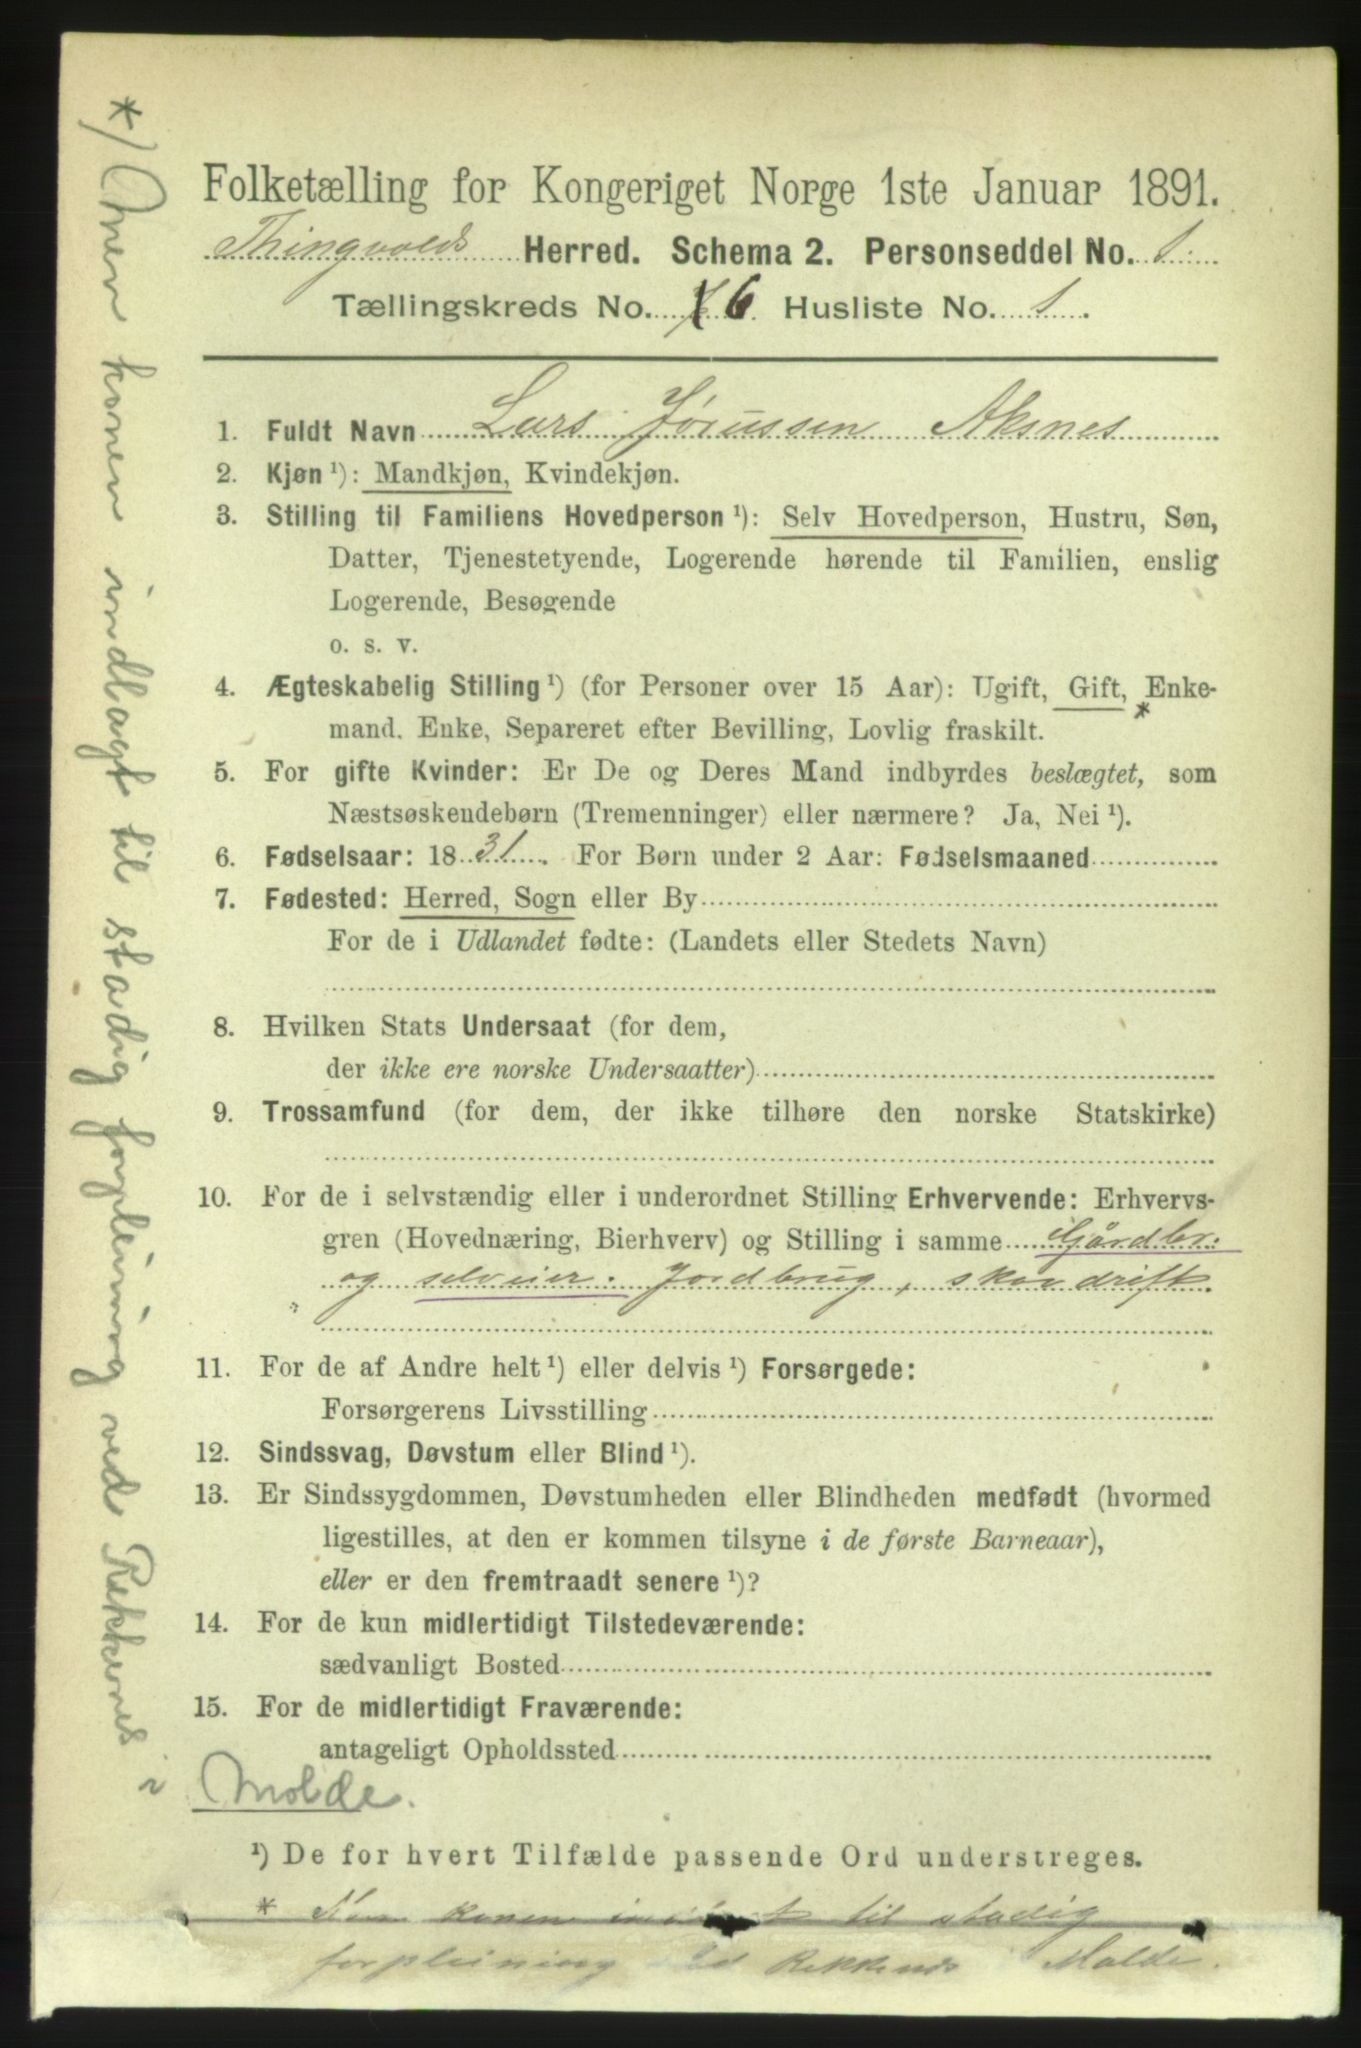 Folketælling for Kongeriget Norge 1ste Januar 1891.
Thingvolds Herred. Schema 2. Personseddel No. 1.
Tællingskreds No. 6 Husliste No. 1.
1. Fuldt Navn Lars Aksnes
2. Kjøn ¹): Mandkjøn, Kvindekjøn.
3. Stilling til Familiens Hovedperson ¹): Selv Hovedperson, Hustru, Søn,
Datter, Tjenestetyende, Logerende hørende til Familien, enslig
Logerende, Besøgende
o. s. v.
4. Ægteskabelig Stilling ¹) (for Personer over 15 Aar): Ugift, Gift, * Enke-
mand. Enke, Separeret efter Bevilling, Lovlig fraskilt.
5. For gifte Kvinder: Er De og Deres Mand indbyrdes beslægtet, som
Næstsøskendebørn (Tremenninger) eller nærmere? Ja, Nei ¹).
6. Fødselsaar: 1831. For Børn under 2 Aar: Fødselsmaaned
7. Fødested: Herred, Sogn eller By
For de i Udlandet fødte: (Landets eller Stedets Navn)
8. Hvilken Stats Undersaat (for dem,
der ikke ere norske Undersaatter)
9. Trossamfund (for dem, der ikke tilhøre den norske Statskirke)
10. For de i selvstændig eller i underordnet Stilling Erhvervende: Erhvervs-
gren (Hovednæring, Bierhverv) og Stilling i samme Gårdbr.
og selveier. Jordbrug, skovdrift.
11. For de af Andre helt ¹) eller delvis ¹) Forsørgede:
Forsørgerens Livsstilling
12. Sindssvag, Døvstum eller Blind ¹).
13. Er Sindssygdommen, Døvstumheden eller Blindheden medfødt (hvormed
ligestilles, at den er kommen tilsyne i de første Barneaar),
eller er den fremtraadt senere ¹)?
14. For de kun midlertidigt Tilstedeværende:
sædvanligt Bosted
15. For de midlertidigt Fraværende:
antageligt Opholdssted
¹) De for hvert Tilfælde passende Ord understreges.
* konen til stadig
forpleining Rekknes Molde.
*) Men konen indlagt til stadig forpleining ved Rekknes i
Molde.